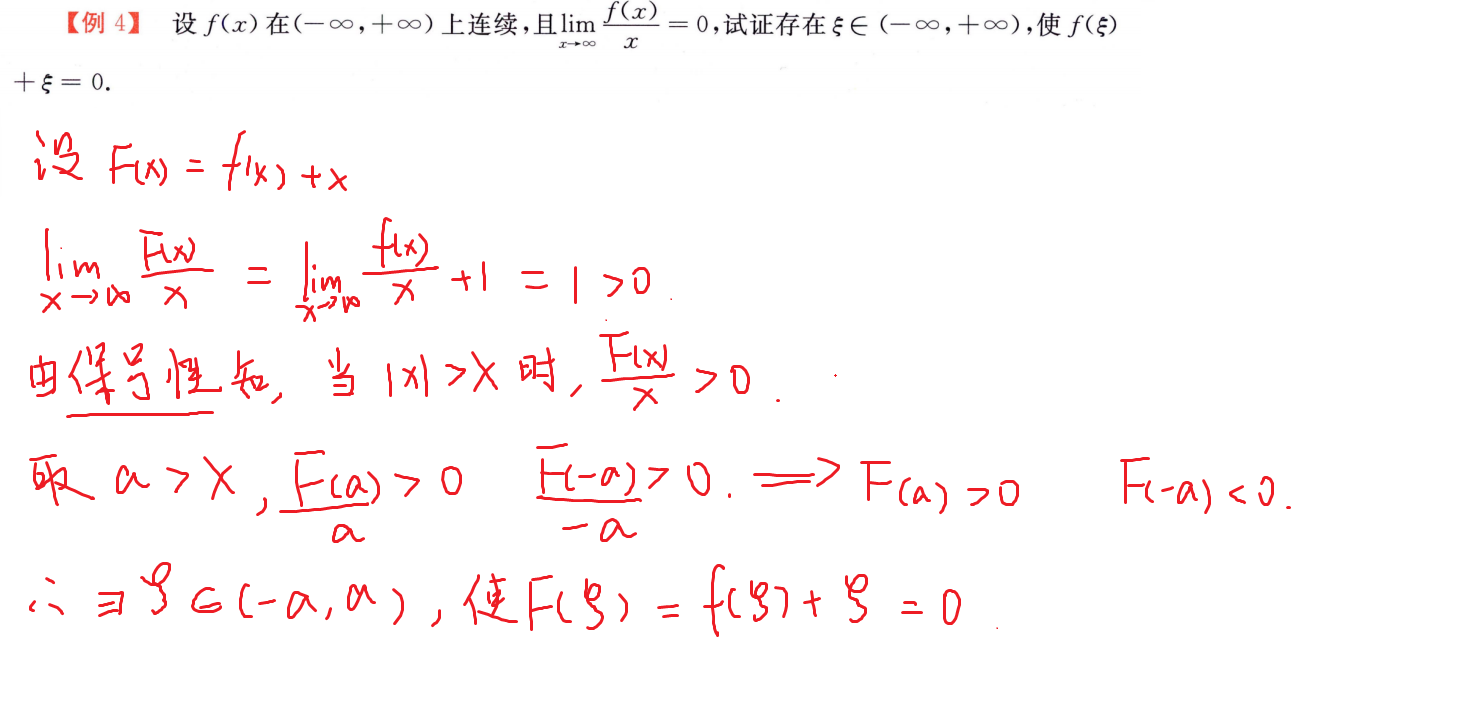 【例 4】 设 f(x) 在(−∞,+∞) 上连续,且lim_{x→∞} f(x)/x = 0,试证存在 ξ∈ (−∞,+∞),使 f(ξ)
+ξ = 0.
设 F(x) = f(x) + x
lim_{x→∞} F(x)/x = lim_{x→∞} f(x)/x + 1 = 1 > 0.
由保号性知, 当 |x| > X 时, F(x)/x > 0.
取 a > X, F(a)/a > 0 F(-a)/-a > 0. ⟹ F(a) > 0 F(-a) < 0.
∴ ∃ ξ ∈ (-a, a), 使 F(ξ) = f(ξ) + ξ = 0.